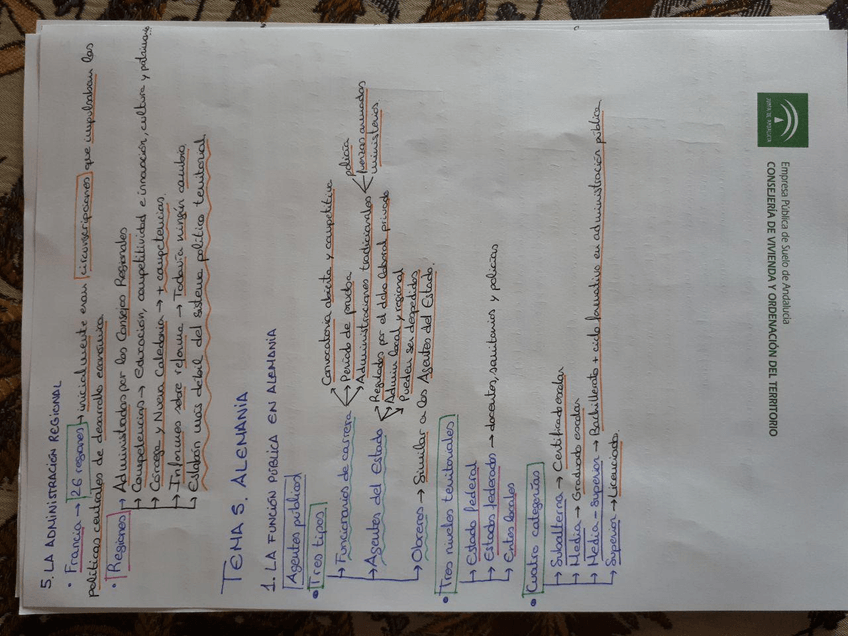 5. LA ADMINISTRACIÓN REGIONAL
• Francia → 26 regiones → inicialmente eran circunscripciones que impulsaban las
políticas centrales de desarrollo económico.
• Regiones → Administradas por los Consejos Regionales
→ Competencias → Educación, competitividad e innovación, cultura y patrimonio
→ Córcega y Nueva Caledonia → + competencias.
→ Informes sobre reforma → Todavía ningún cambio
→ Eslabón más débil del sistema político territorial.
TEMA 5. ALEMANIA
1. LA FUNCIÓN PÚBLICA EN ALEMANIA
Agentes públicos
• Tres tipos
→ Funcionarios de carrera → Convocatoria abierta y competitiva
→ Periodo de prueba
→ Administraciones tradicionales → policía
→ fuerzas armadas
→ ministerios
→ Agentes del Estado → Regulados por el dcho laboral privado
→ Admin local y regional
→ Pueden ser despedidos
→ Obreros → Similar a los Agentes del Estado.
• Tres niveles territoriales
→ Estado federal
→ Estados federados → docentes, sanitarios y policías
→ Entes locales
• Cuatro categorías
→ Subalterna → Certificado escolar
→ Media → Graduado escolar
→ Media - Superior → Bachillerato + ciclo formativo en administración pública
→ Superior → Licenciado.
JUNTA DE ANDALUCIA
Empresa Pública de Suelo de Andalucía
CONSEJERÍA DE VIVIENDA Y ORDENACIÓN DEL TERRITORIO